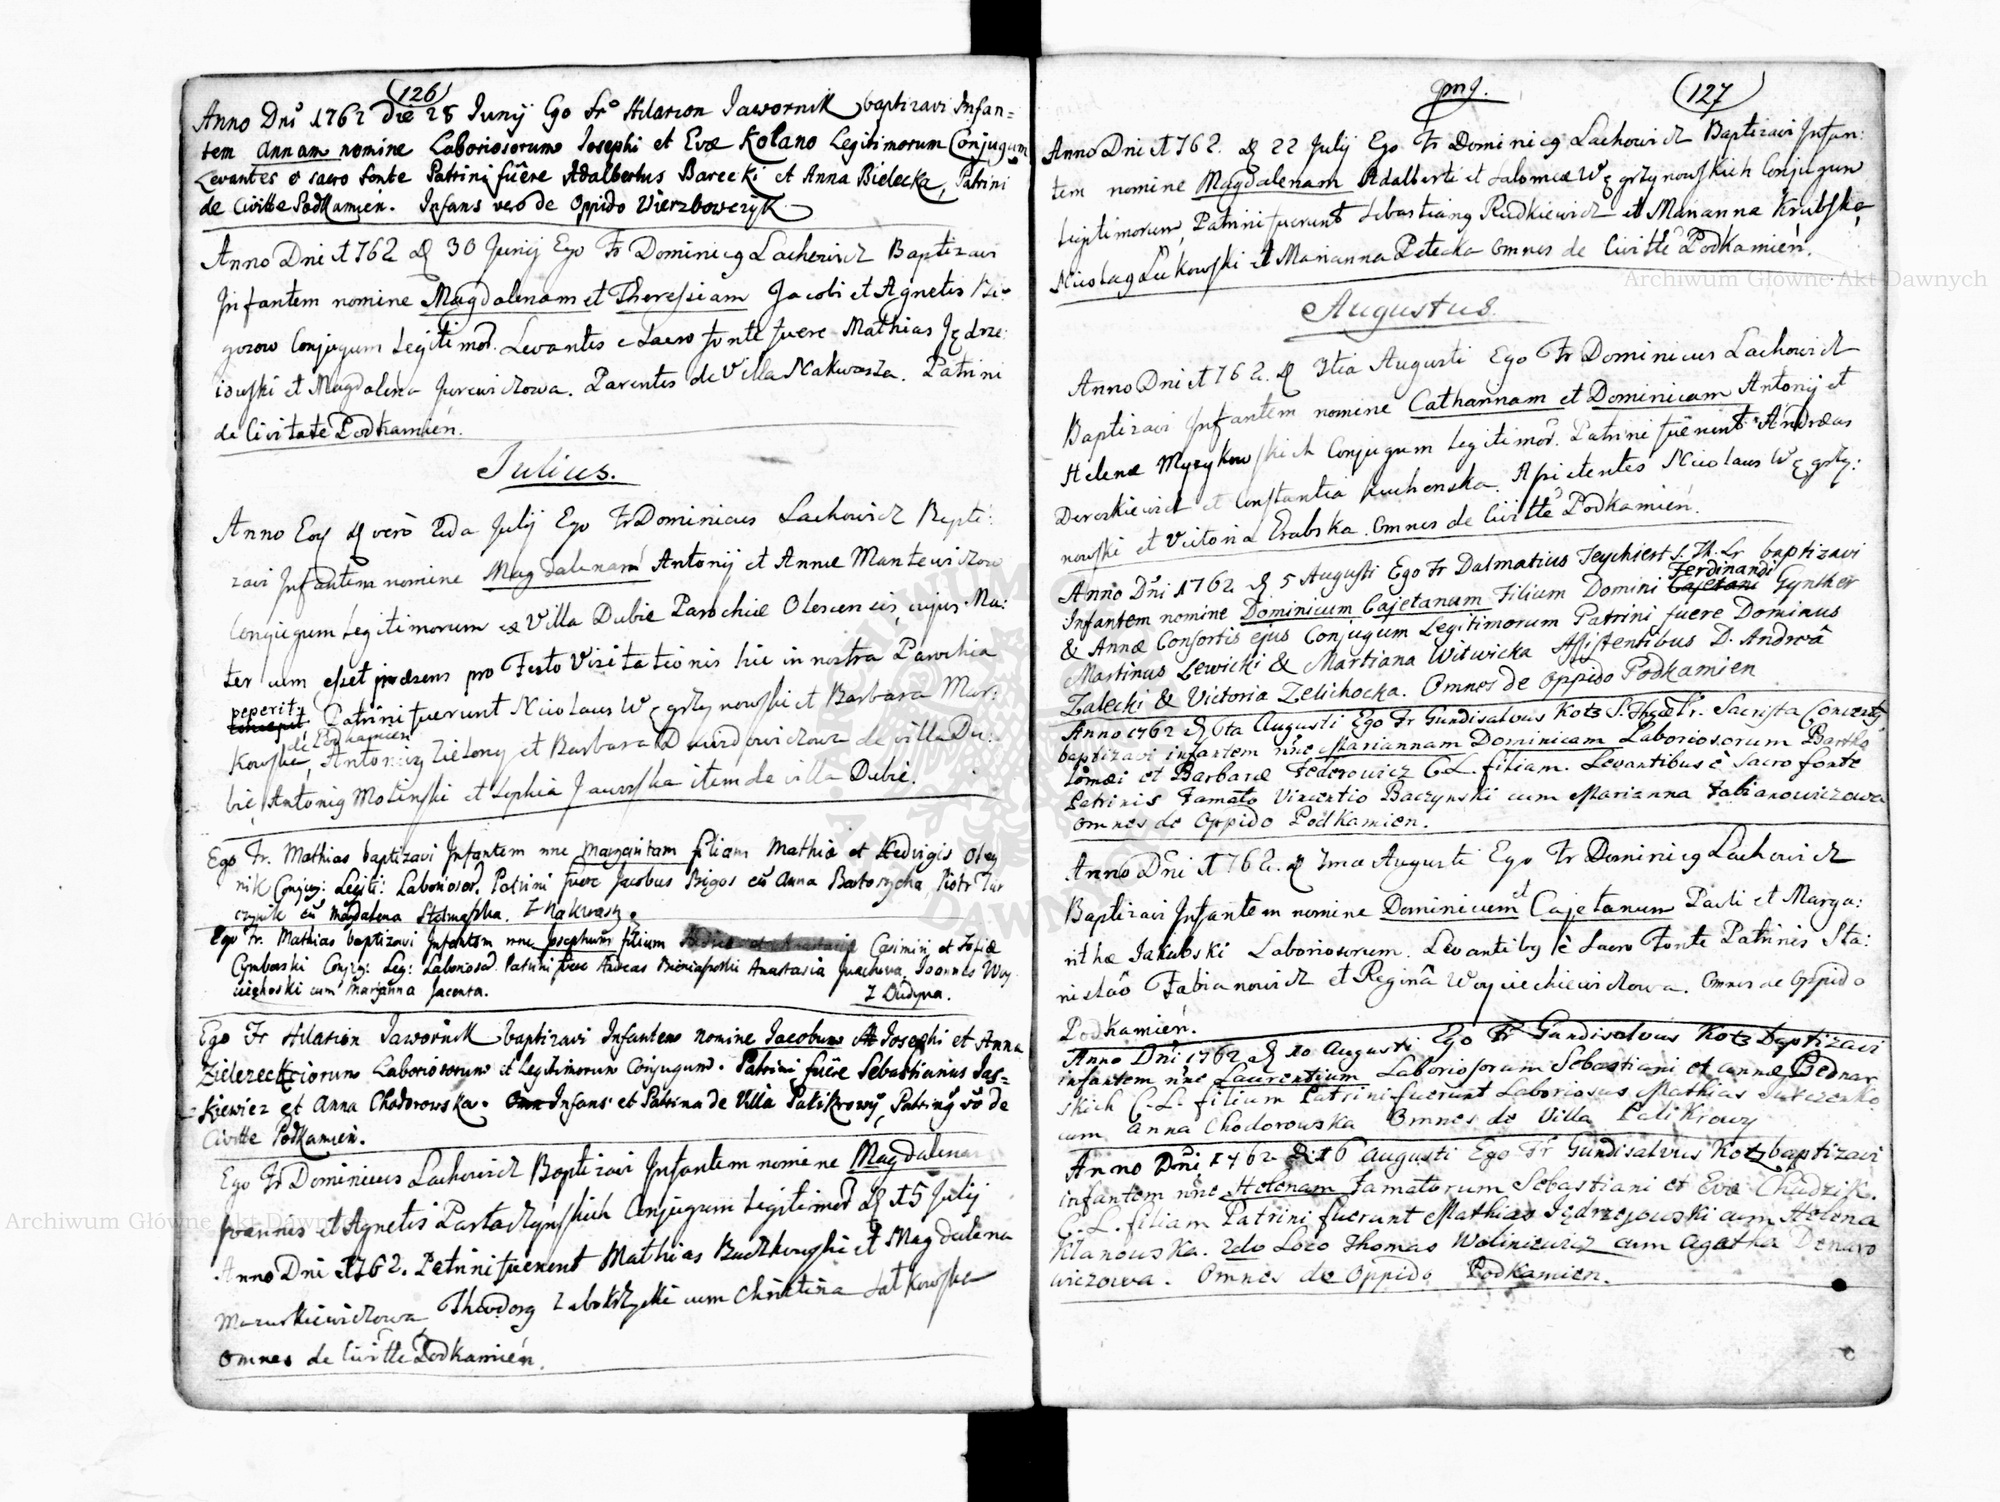 126
Anno Dni 1762 die 28 Junij Ego Fr Hilarion Jawornik baptizavi Infan=
tem Annam nomine Laboriosorum Josephi et Evæ Kolano Legitimorum Conjugum
Levantes e sacro fonte Patrini fuêre Adalbertus Barecki et Anna Bielecka, Patrini
de Civitte Podkamien. Infans vero de Oppido Vierzbowczyk.
Anno Dni 1762 d 30 Junij Ego Fr Dominicg Lachowicz Baptizavi
Infantem nomine Magdalenam et Theresiam Jacobi et Agnetis
gorow Conjugum Legitimor. Levantes e Sacro fonte fuere Mathias Jędrze
iowski et Magdalena Jurewiczowa. Parentes de Villa Nakwasza. Patrini
de Civitate Podkamień.
Julius.
Anno Eoq d verò 2da Julij Ego Fr Dominicus Lachowicz Bapti:
zavi Infantem nomine Magdalenam Antonij et Annæ Mantewiczow
Conjugum Legitimorum ex Villa Dubie Parochiæ Olescensis, cujus Ma:
ter cum esset præsens pro Festo Visitationis hic in nostra Parochia
peperit
Patrini fuerunt Nicolaus Węgrzynowski et Barbara Mar:
de Podkamien
kowska, Antonig Zielony et Barbara Dawidowiczowa de villa Du:
bie, Antonig Molinski et Sophia Jaworska item de villa Dubie.
Ego Fr. Mathias baptizavi Infantem nne Margaritam filiam Mathiæ et Hedvigis Oley
nik Conjug: Legiti: Laboriosor. Patrini fuere Jacobus Bigos cũ Anna Bartosycha Piotr
cũ Magdalena Stelmaska. Z Nakwaszy.
Ego Fr. Mathias baptizavi Infantem nne Josephum filium Casimiri et Sofiæ
Cymborski Conjg: Leg: Laboriosor. Patrini fuere Andreas Anastasia Joannes Woy
ciechoski cum Marjanna Jacenta. Z Dudyna.
Ego Fr Hilarion Jawornik baptizavi Infantem nomine Jacobum Josephi et Anna
Laboriosorum et Legitimorum Conjugum. Patrini fuêre Sebastianus Jas=
kiewicz et Anna Chodorowska. Infans et Patrina de Villa Palikrowy, Patring vo de
Civitte Podkamień.
Ego Fr Dominicus Lachowicz Baptizavi Infantem nomine Magdalenam
Joannis et Agnetis Partaczyńskich Conjugum Legitimor d 15 Julij
Anno Dni 1762. Patrini fuerunt Mathias Buczkowski et Magdalena
Maruszkiewiczowa, Theodorg Zaborzycki cum Christina Satkowska
Omnes de Civitte Podkamień.
pmg.
127
Anno Dni 1762. d 22 Julij Ego Fr Dominicg Lachowicz Baptizavi Infan:
tem nomine Magdalenam Adalberti et Salomeæ Węgrzynowskich Conjugum
Legitimorum, Patrini fuerunt Sebastiang Rudkiewicz et Marianna Krubska,
Nicolag Lukowski et Marianna Petecka Omnes de Civitte Podkamień.
Augustus.
Anno Dni 1762. d 3tia Augusti Ego Fr Dominicus Lachowicz
Baptizavi Infantem nomine Catharinam et Dominicam Antonij et
Helenæ Myzykowskich Conjugum Legitimor. Patrini fuêrunt Andræas
Dereszkiewicz et Constantia Kuchenska. Assistentes Nicolaus Węgrzy:
nowski et Victoria Krubska. Omnes de Civitte Podkamień.
Anno Dñi 1762 d 5 Augusti Ego Fr Dalmatius Teychiert S. Th. Lr baptizavi
Ferdinandi
Infantem nomine Dominicum Cajetanum Filium Domini Cajetani Gynther
& Annæ Consortis ejus Conjugum Legitimorum Patrini fuere Dominus
Martinus Lewicki & Martiana Witwicka Assistentibus D. Andreâ
Zalecki & Victoria Zelichocka. Omnes de Oppido Podkamien
Anno 1762 d 6ta Augusti Ego Fr Gundisalvus Kotz S. Thgæ Lr. Sacrista Convents
baptizavi infantem nne Mariannam Dominicam Laboriosorum Bartho
lomæi et Barbaræ Federowicz C. L. filiam. Levantibus è Sacro fonte
Patrinis Famato Vincentio Baczynski cum Marianna Fabianowiczowa
omnes de Oppido Podkamien.
Anno Dñi 1762. d 7ma Augusti Ego Fr Dominicg Lachowicz
Baptizavi Infantem nomine Dominicum et Cajetanum Pauli et Marga:
rithæ Jakubski Laboriosorum. Levantibg è Sacro Fonte Patrinis Sta:
nislaô Fabianowicz et Reginâ Woyciechiewiczowa. Omnes de Oppido
Podkamień.
Anno Dñi 1762 d 10 Augusti Ego Fr Gundisalvus Kotz baptizavi
infantem nne Laurentium Laboriosorum Sebastiani et Annæ Bednar
skich C. L. filium Patrini fuerunt Laboriosus Mathias Jurczenko
cum Anna Chodorowska Omnes de Villa Palikrowy
Anno Dñi 1762 d 16 Augusti Ego Fr Gundisalvus Kotz baptizavi
infantem nne Helenam Famatorum Sebastiani et Evæ Chudzik.
C. L. filiam Patrini fuerunt Mathias Jędrzejouski cum Helena
Klanowska. 2do Loco Thomas Woliniewicz cum Agatha Denaro
wiczowa. Omnes de Oppido Podkamien.
Archiwum Główne Akt Dawnych
Archiwum Główne Akt Dawnych